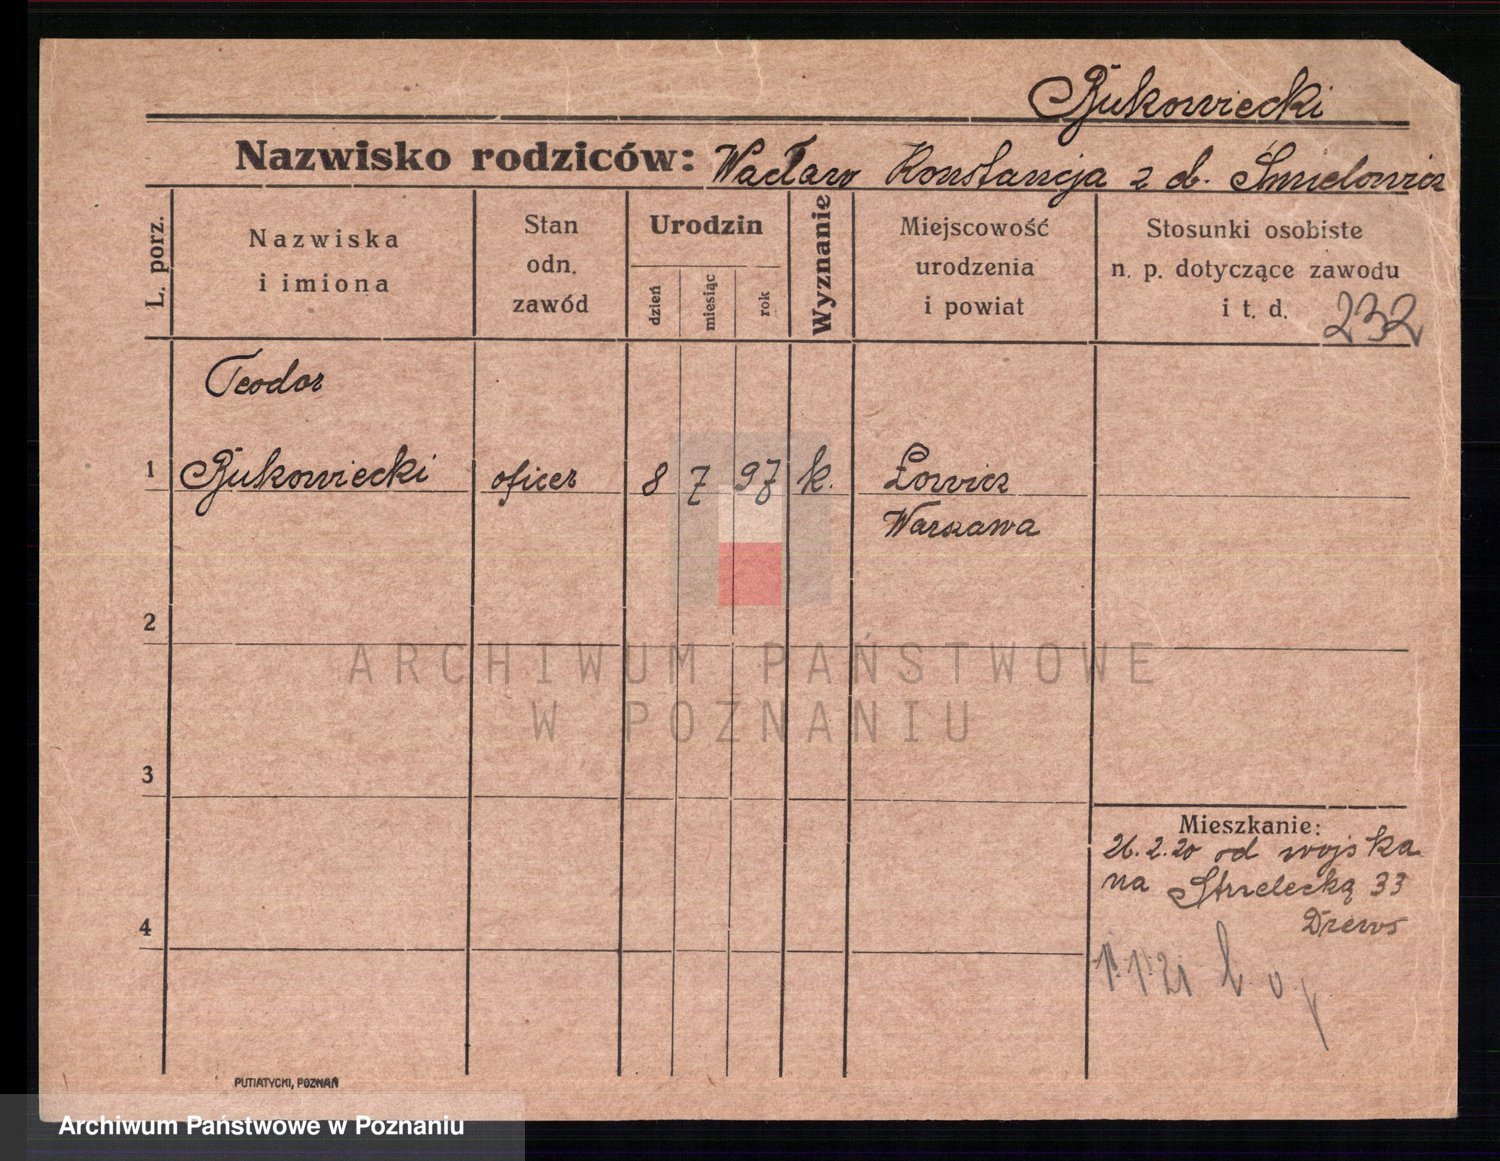 Bukowiecki
Nazwisko rodziców: Wacław Konstancja z d. Śmielowicz
L. porz.
Nazwiska
i imiona
Stan
odn.
zawód
Urodzin
dzień
miesiąc
rok
Wyznanie
Miejscowość
urodzenia
i powiat
Stosunki osobiste
n. p. dotyczące zawodu
i t. d. 232
Teodor
1 Bukowiecki oficer 8 7 97 k. Łowicz
Warszawa
2
ARCHIWUM PAŃSTWOWE
W POZNANIU
3
Mieszkanie:
26.2.20 od wojska
na Strzelecką 33
Drews
4
PUTIATYCKI, POZNAŃ
Archiwum Państwowe w Poznaniu